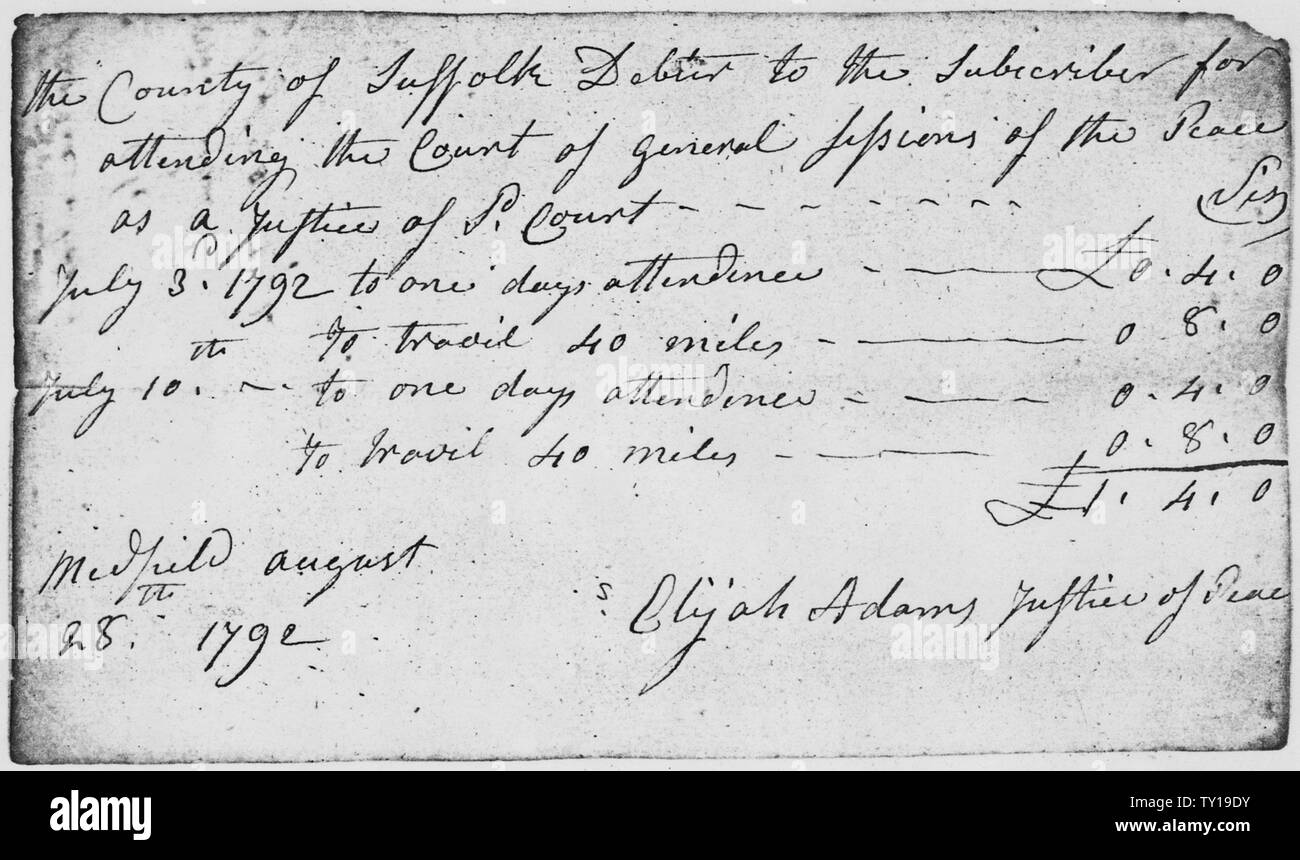 the County of Suffolk Debtr to the Subscriber for
attending the Court of general Sessions of the Peace
as a Justice of Sd. Court - - - - - - -
July 3d. 1792 to one days attendence - — — £0. 4. 0
to travil 40 miles - — — 0 8. 0
July 10th. - - to one days attendence - — — 0. 4. 0
to travil 40 miles - — — 0. 8. 0
£1. 4. 0
Medfield august
28th. 1792
Elijah Adams Justice of Peace
alamy
Image ID: TY19DY
www.alamy.com